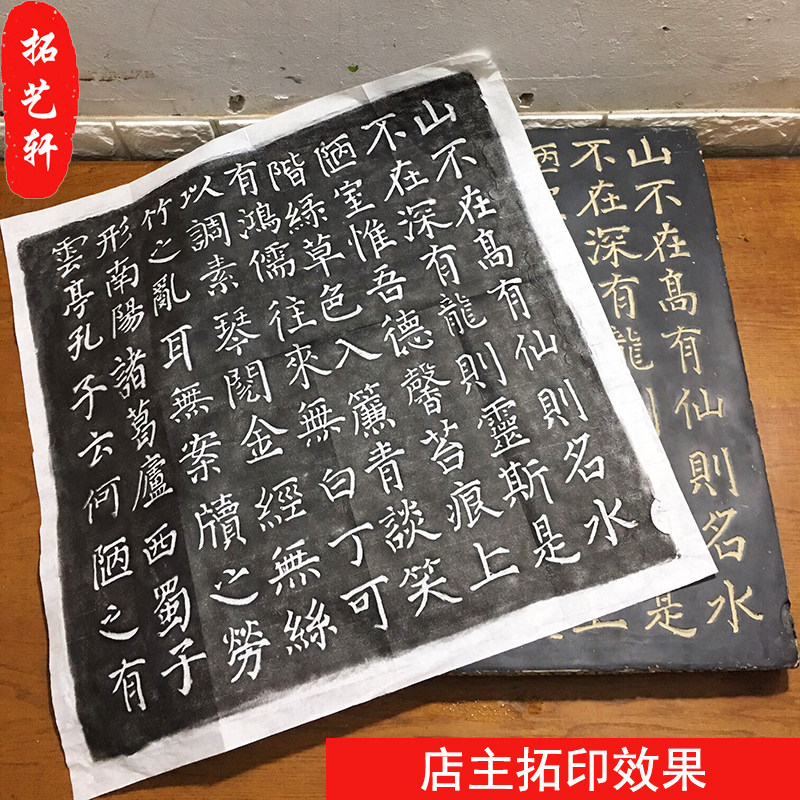 拓艺轩
山不在髙有仙則名水
不在深有龍則靈斯是
陋室惟吾德馨苔痕上
階綠草色入簾青談笑
有鴻儒往來無白丁可
以調素琴閱金經無絲
竹之亂耳無案牘之勞
形南陽諸葛廬西蜀子
雲亭孔子云何陋之有
山不在髙有仙則名水
不在深有龍則是
店主拓印效果